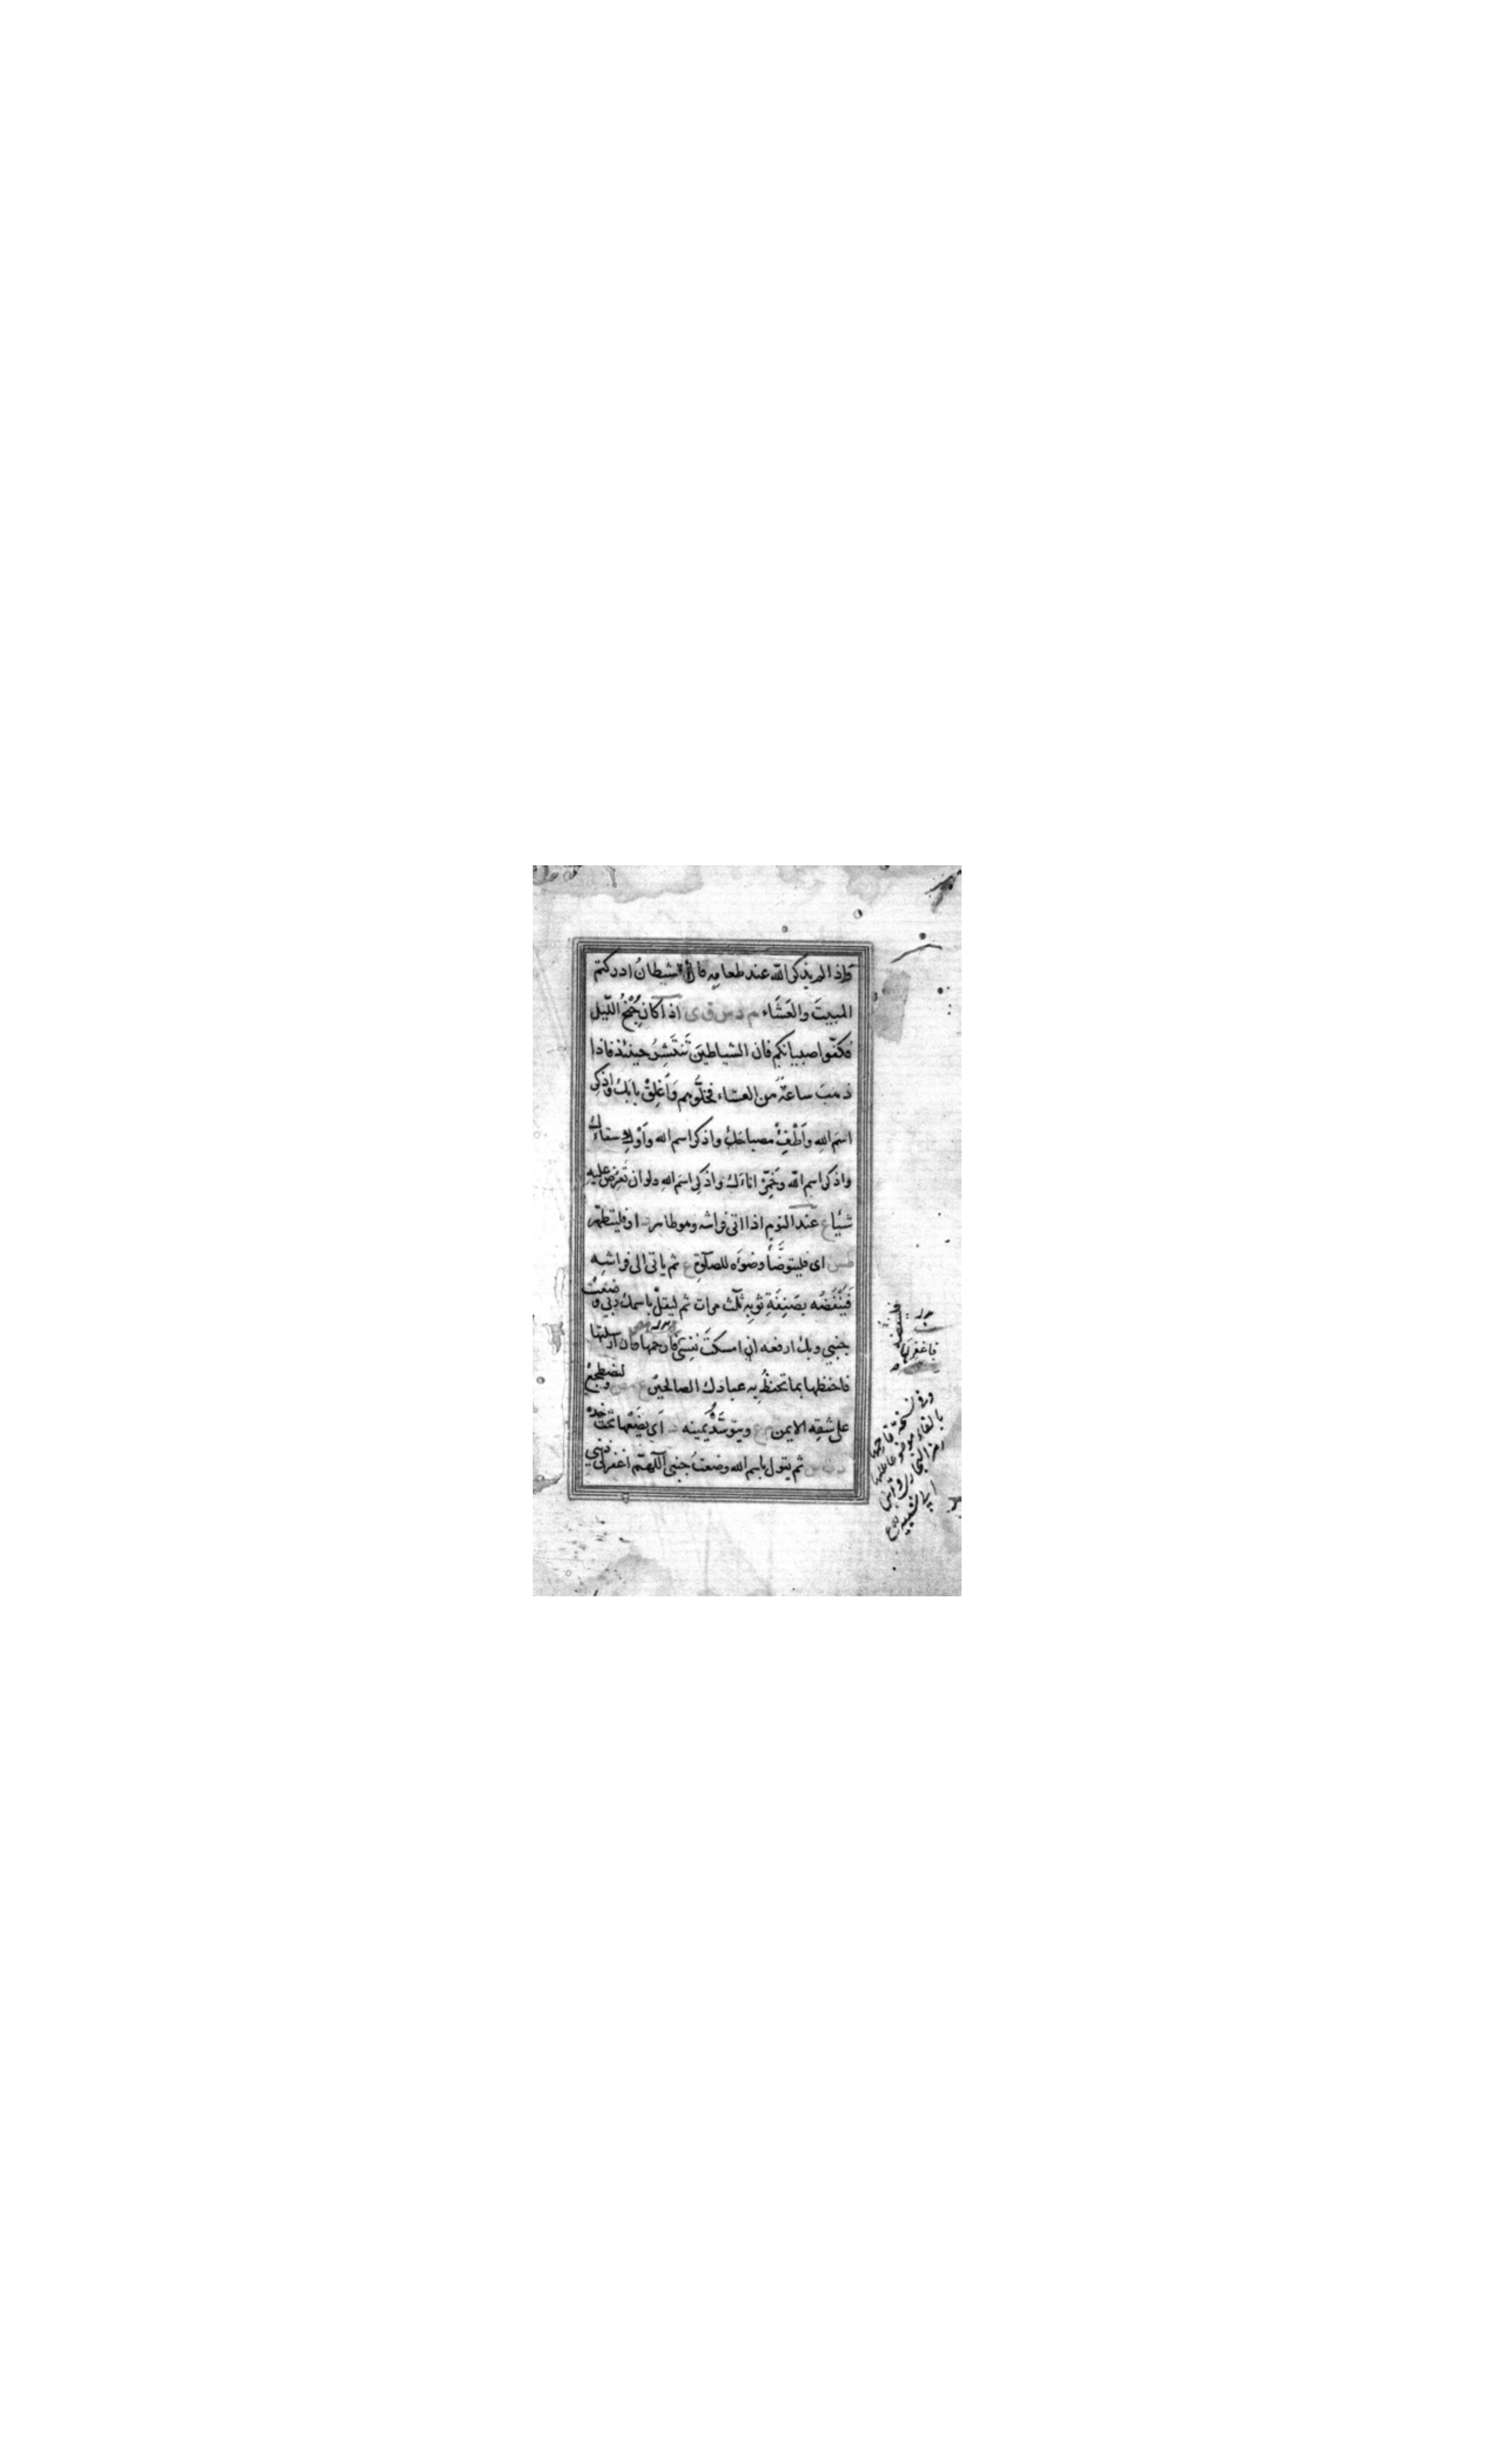 واذا لم يذكر الله عند طعامه قال الشيطان ادركتم
المبيتَ والعَشَاء م د س ق ى اذا كان جُنْحُ اللّيل
فكفّوا صبيانكم فان الشياطينَ تَنتَشِرُ حينئذ فاذا
ذهبَ ساعةٌ من العشاء فخلّوهم وَاَغلِقْ بابَك واذكر
اسمَ اللهِ وَاَطْفِئْ مصباحك واذكر اسم الله وَاَوْكِ سقاءك
واذكر اسم الله وخَمِّرْ اناءَك واذكر اسمَ اللهِ ولو ان تَعرُضَ عليه
شيئا ع عند النوم اذا اتى فراشه وهو طاهر د او فليتطهّر
طس اى فليتوضَّأ وضوءَه للصلٰوةِ ع ثم ياتى الى فراشِه
فَيَنْفُضُه بصَنِفَةِ ثوبِه ثلٰث مرات ثم ليقلْ باسمك ربي وضعتُ
جنبي وبك ارفعه ان امسكتَ نفسي فارحمها وان ارسلتها
فاحفظها بما تحفظُ به عبادك الصالحين ع مص وليضطجعْ
على شقِه الايمن ع ويتوسَّدْ يمينه د اَى يضَعْها تحتَ خده
د ت س ثم يقول باسم الله وضعتُ جنبى اللّٰهمّ اغفر لى ذنبي
فلينفضه
فاغفر لها
وفى نسخة فارحمها
بالفاء